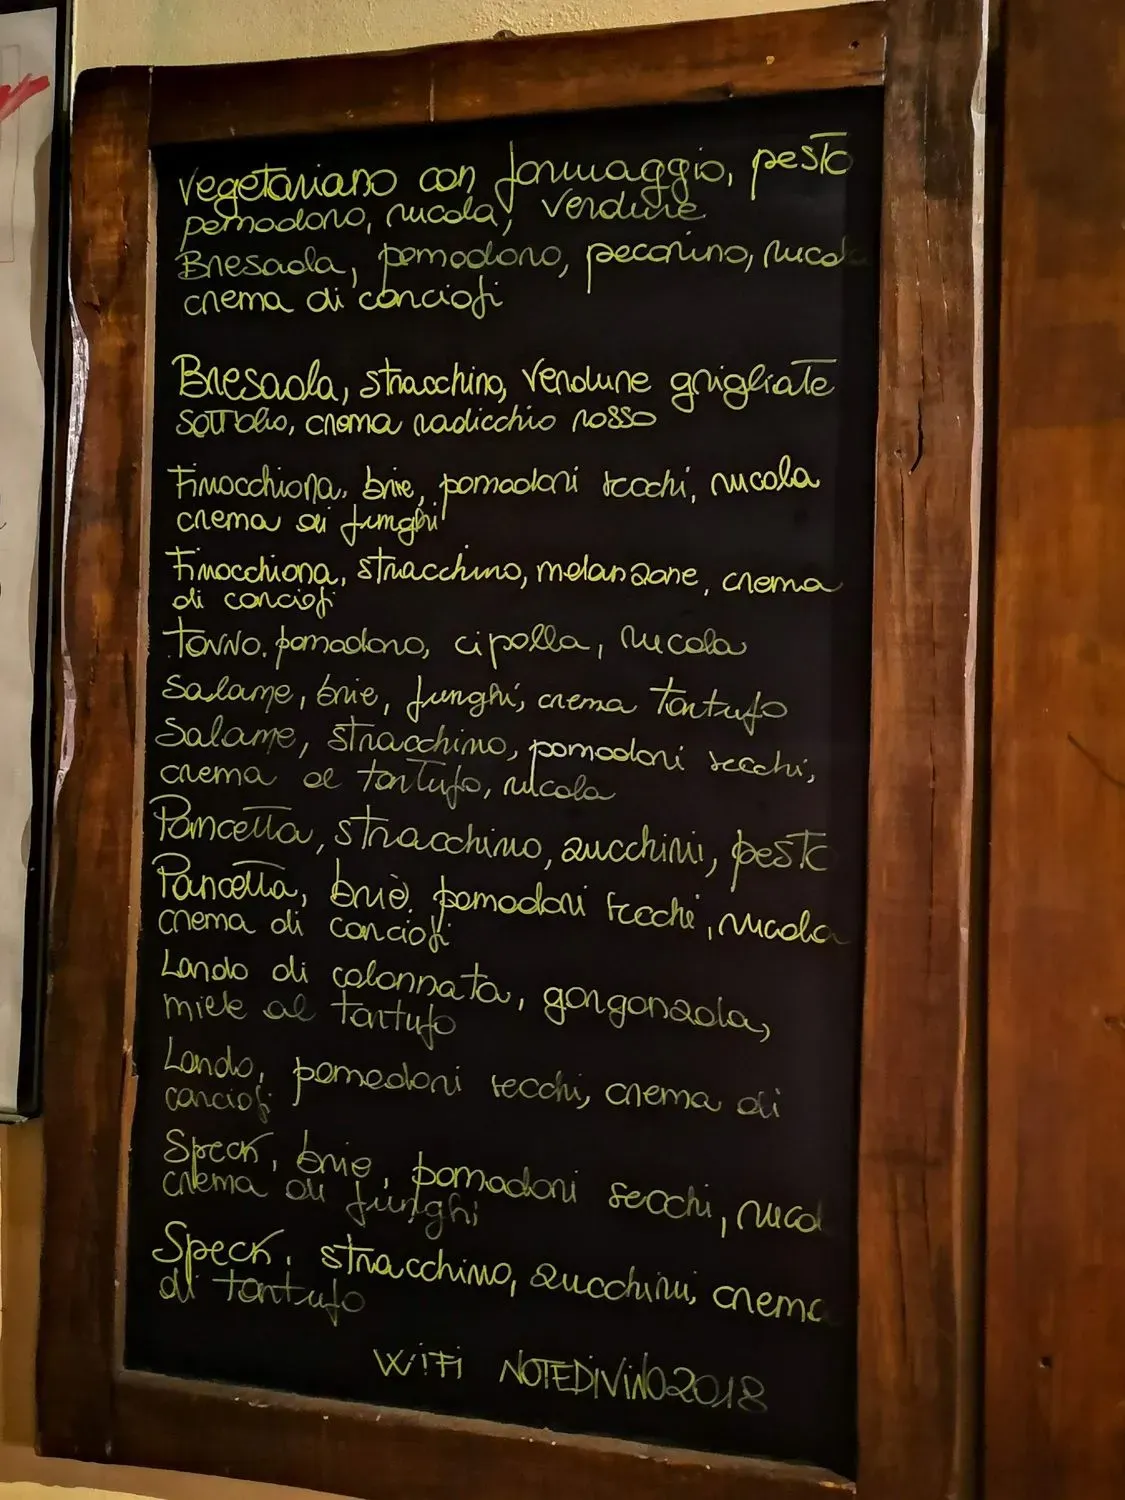 vegetariano con formaggio, pesto
pomodoro, rucola, verdure
Bresaola, pomodoro, pecorino, rucola
crema di carciofi
Bresaola, stracchino, verdure grigliate
sottolio, crema radicchio rosso
Finocchiona, brie, pomodori secchi, rucola
crema di funghi
Finocchiona, stracchino, melanzane, crema
di carciofi
Tonno, pomodoro, cipolla, rucola
Salame, brie, funghi, crema tartufo
Salame, stracchino, pomodori secchi,
crema al tartufo, rucola
Pancetta, stracchino, zucchini, pesto
Pancetta, briè, pomodori secchi, rucola
crema di carciofi
Lardo di colonnata, gorgonzola,
miele al tartufo
Lardo, pomodori secchi, crema di
carciofi
Speck, brie, pomodori secchi, rucol
crema di funghi
Speck, stracchino, zucchini, crema
di tartufo
WiFi NOTEDiViNO2018